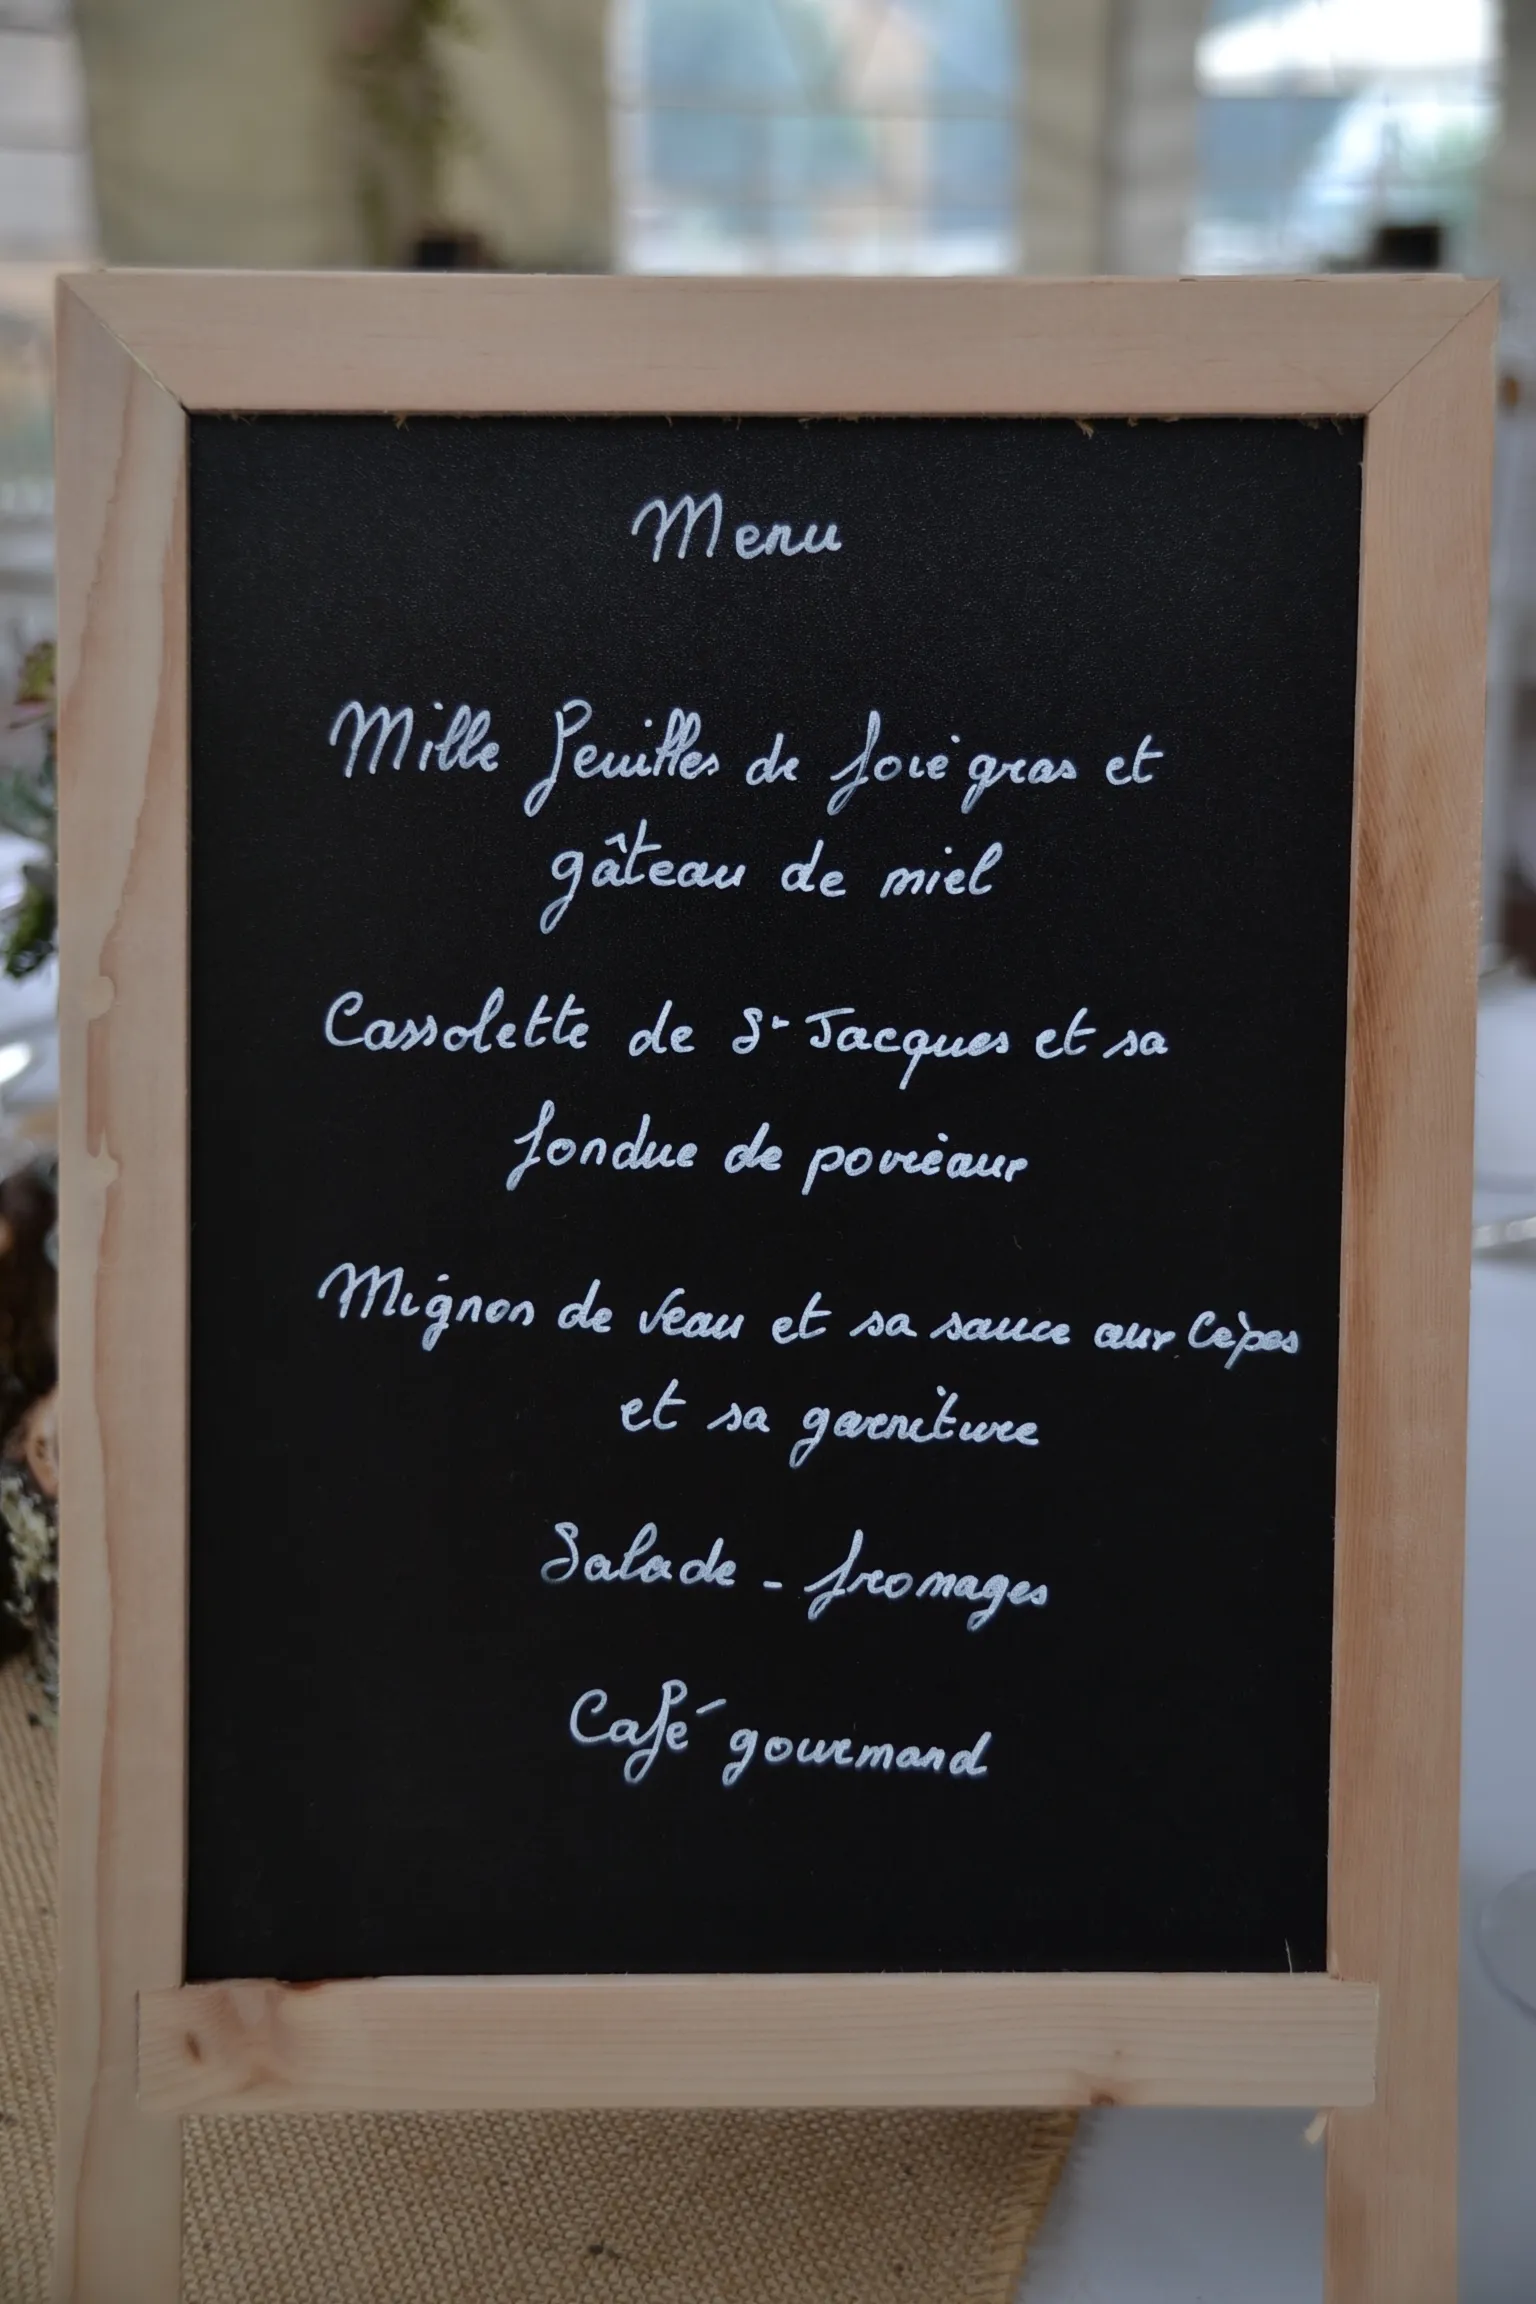 Menu
Mille feuilles de foie gras et
gâteau de miel
Cassolette de St Jacques et sa
fondue de poireaux
Mignon de Veau et sa sauce aux Cèpes
et sa garniture
Salade - fromages
Café gourmand